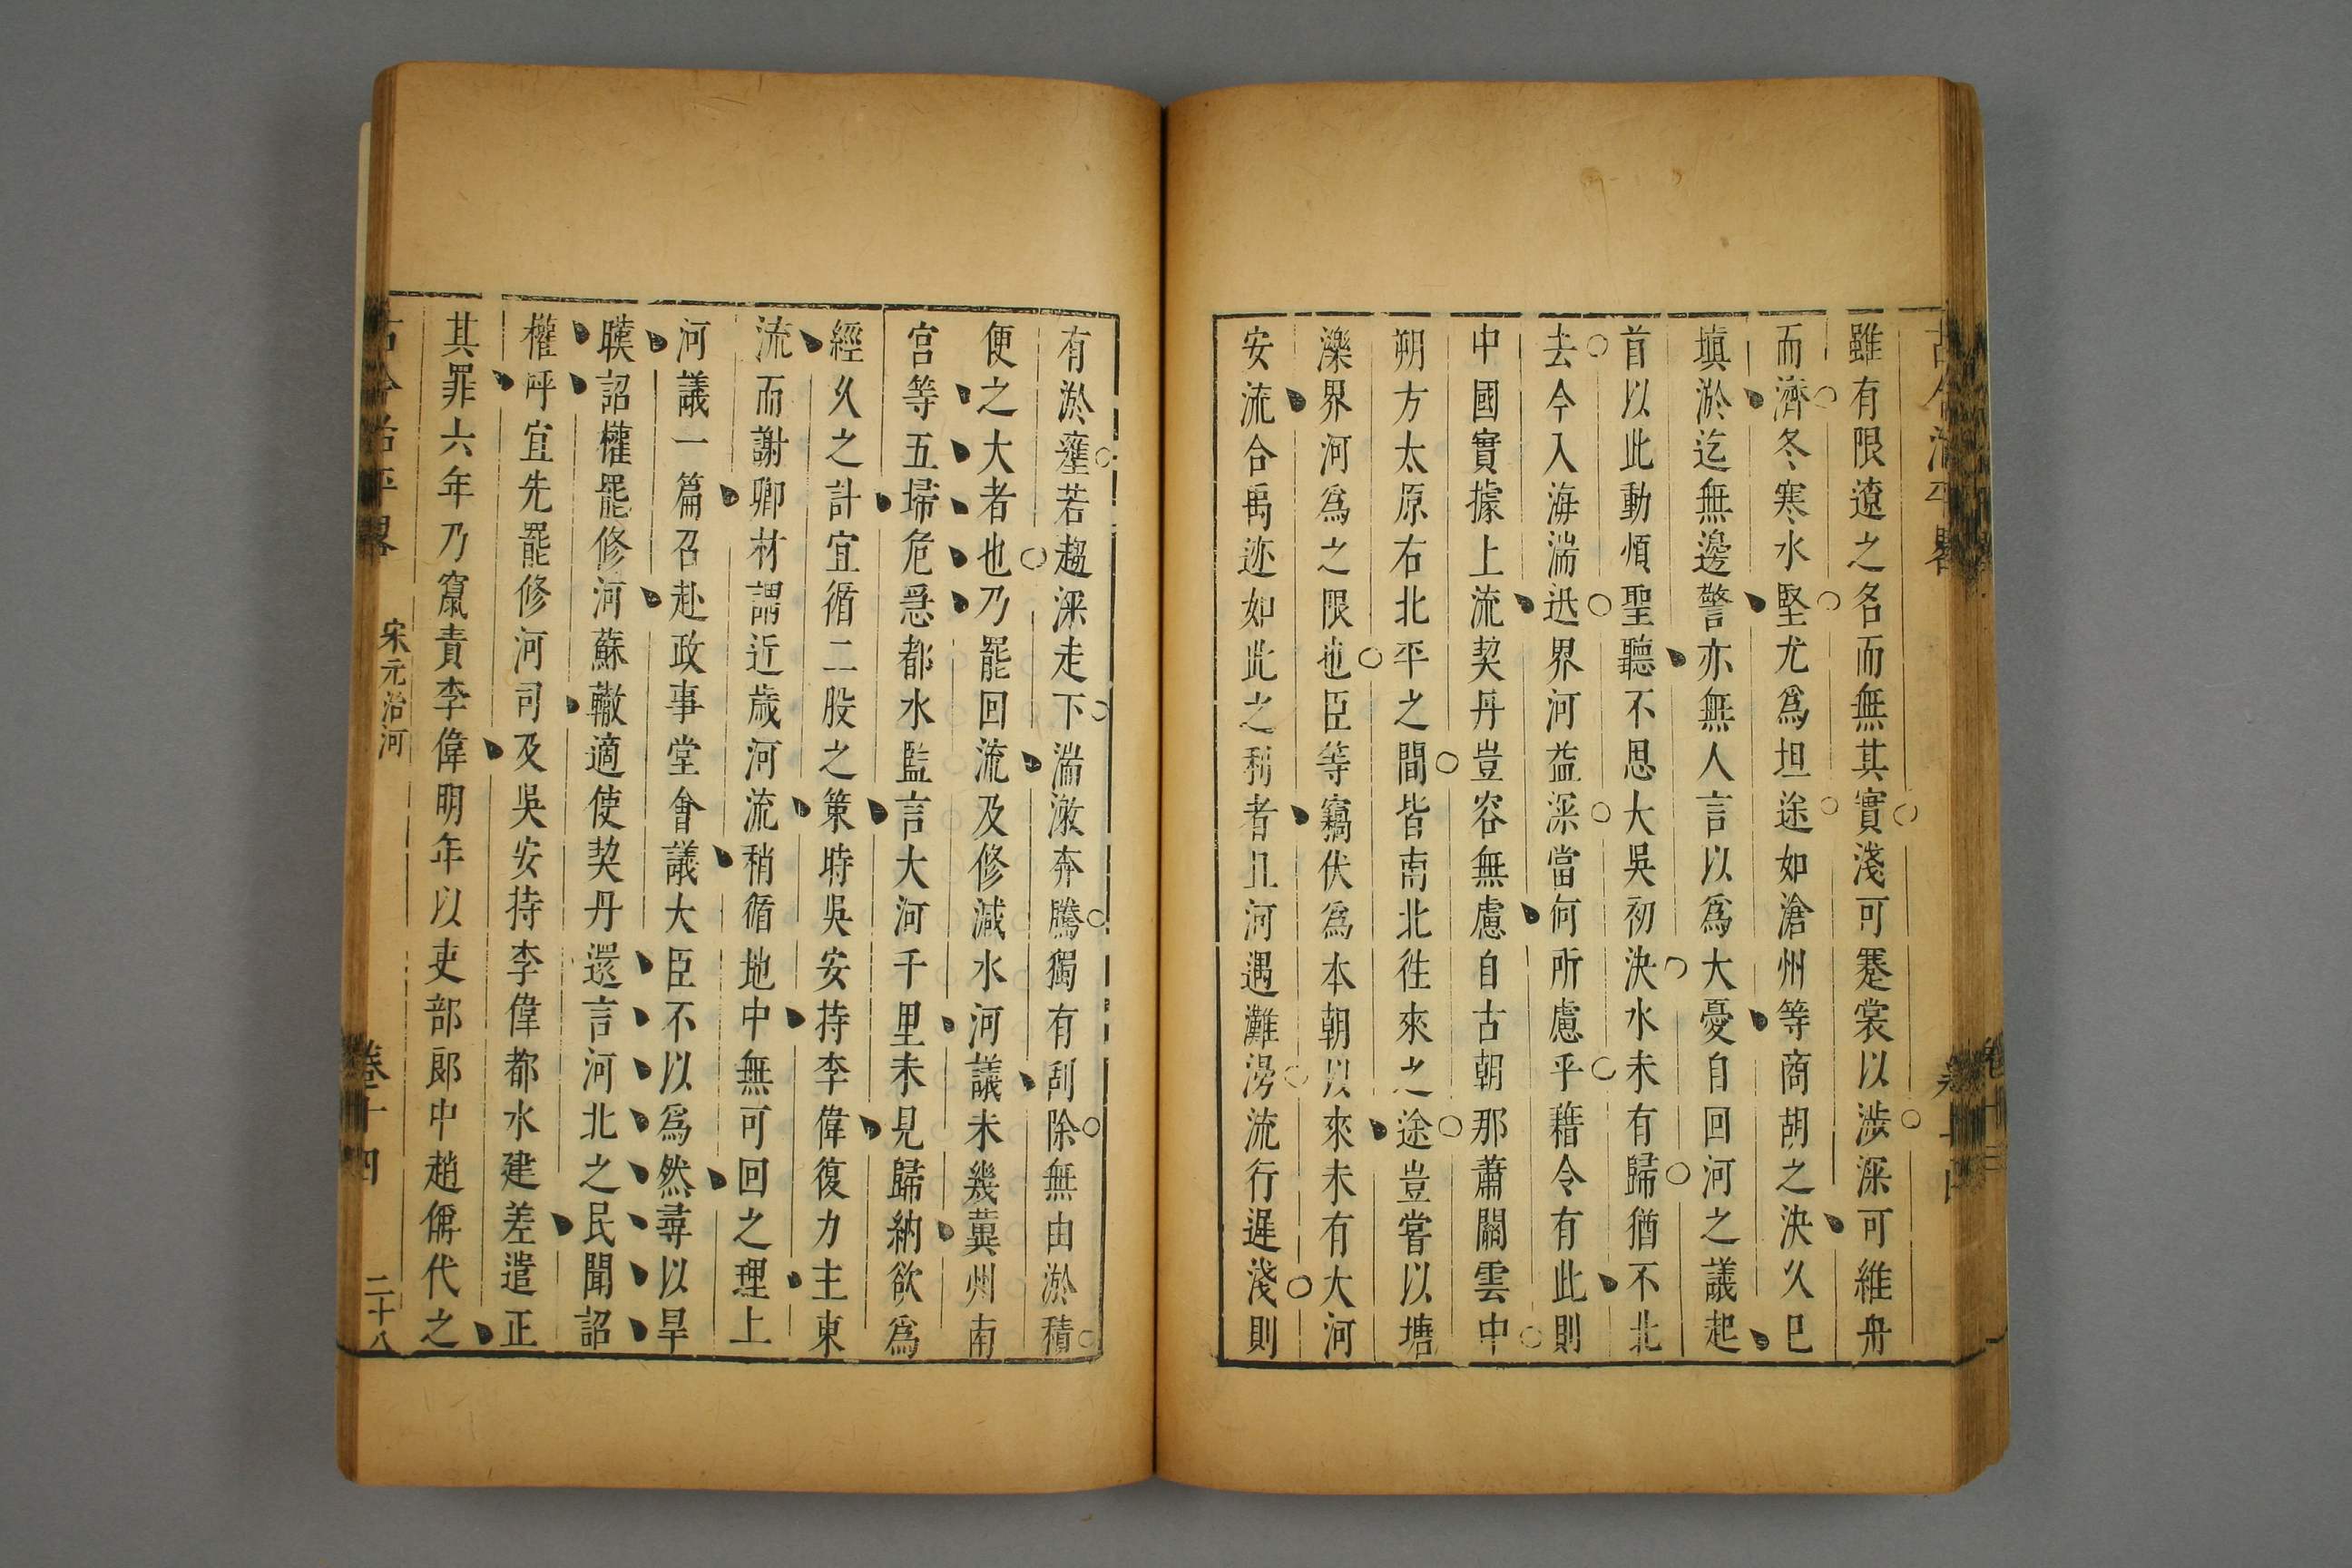 雖有限遼之名而無其實淺可褰裳以涉深可維舟
而濟冬寒水堅尤爲坦途如滄州等商胡之決久巳
塡淤迄無邊警亦無人言以爲大憂自回河之議起
首以此動煩聖聽不思大吳初決水未有歸猶不北
去今入海湍迅界河益深當何所慮乎藉令有此則
中國實據上流契丹豈容無慮自古朝那蕭關雲中
朔方太原右北平之間皆南北徃來之途豈嘗以塘
濼界河爲之限也臣等竊伏爲本朝以來未有大河
安流合禹迹如此之利者且河遇灘漫流行遲淺則
有淤壅若趨深走下湍激奔騰獨有刮除無由淤積
便之大者也乃罷回流及修減水河議未幾冀州南
宫等五埽危急都水監言大河千里未見歸納欲爲
經久之計宜循二股之策時吳安持李偉復力主東
流而謝卿材謂近歲河流稍循地中無可回之理上
河議一篇召赴政事堂會議大臣不以爲然尋以旱
暵詔權罷修河蘇轍適使契丹還言河北之民聞詔
權呼宜先罷修河司及吳安持李偉都水建差遣正
其罪六年乃竄責李偉明年以吏部郎中趙偁代之
古今治平畧
宋元治河
卷十四
二十八